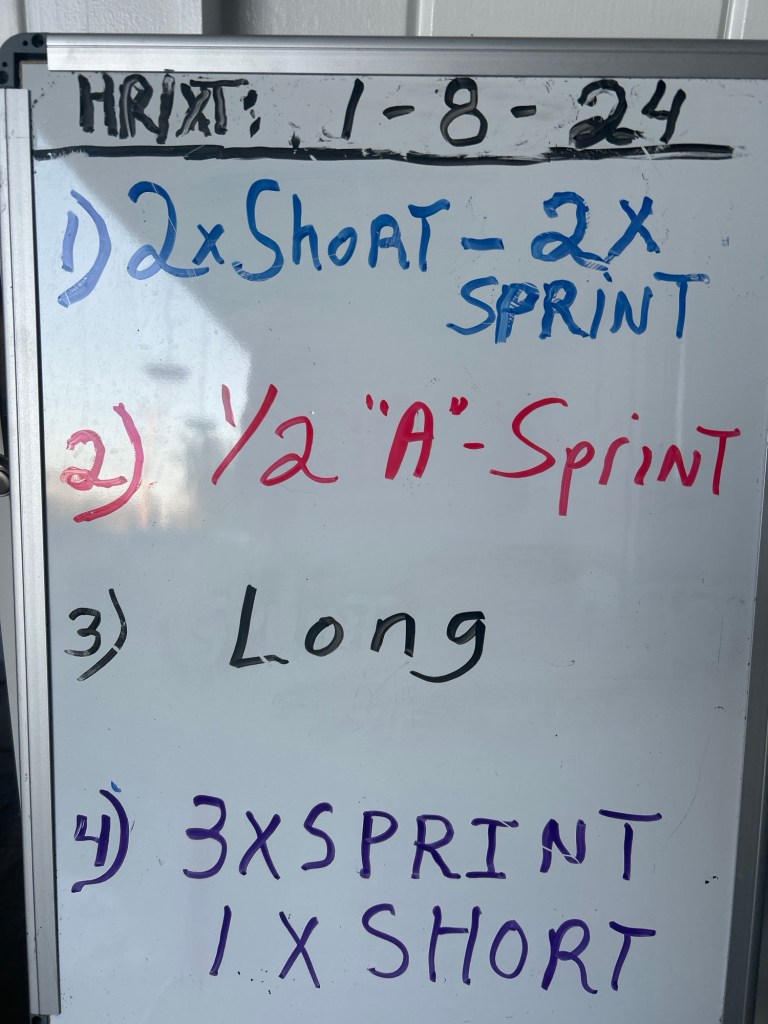 HRIXT: 1-8-24
1) 2x ShoRT - 2X
SPRiNT
2) 1/2 "A"- SpriNT
3) Long
4) 3X SPRINT
1 X SHORT